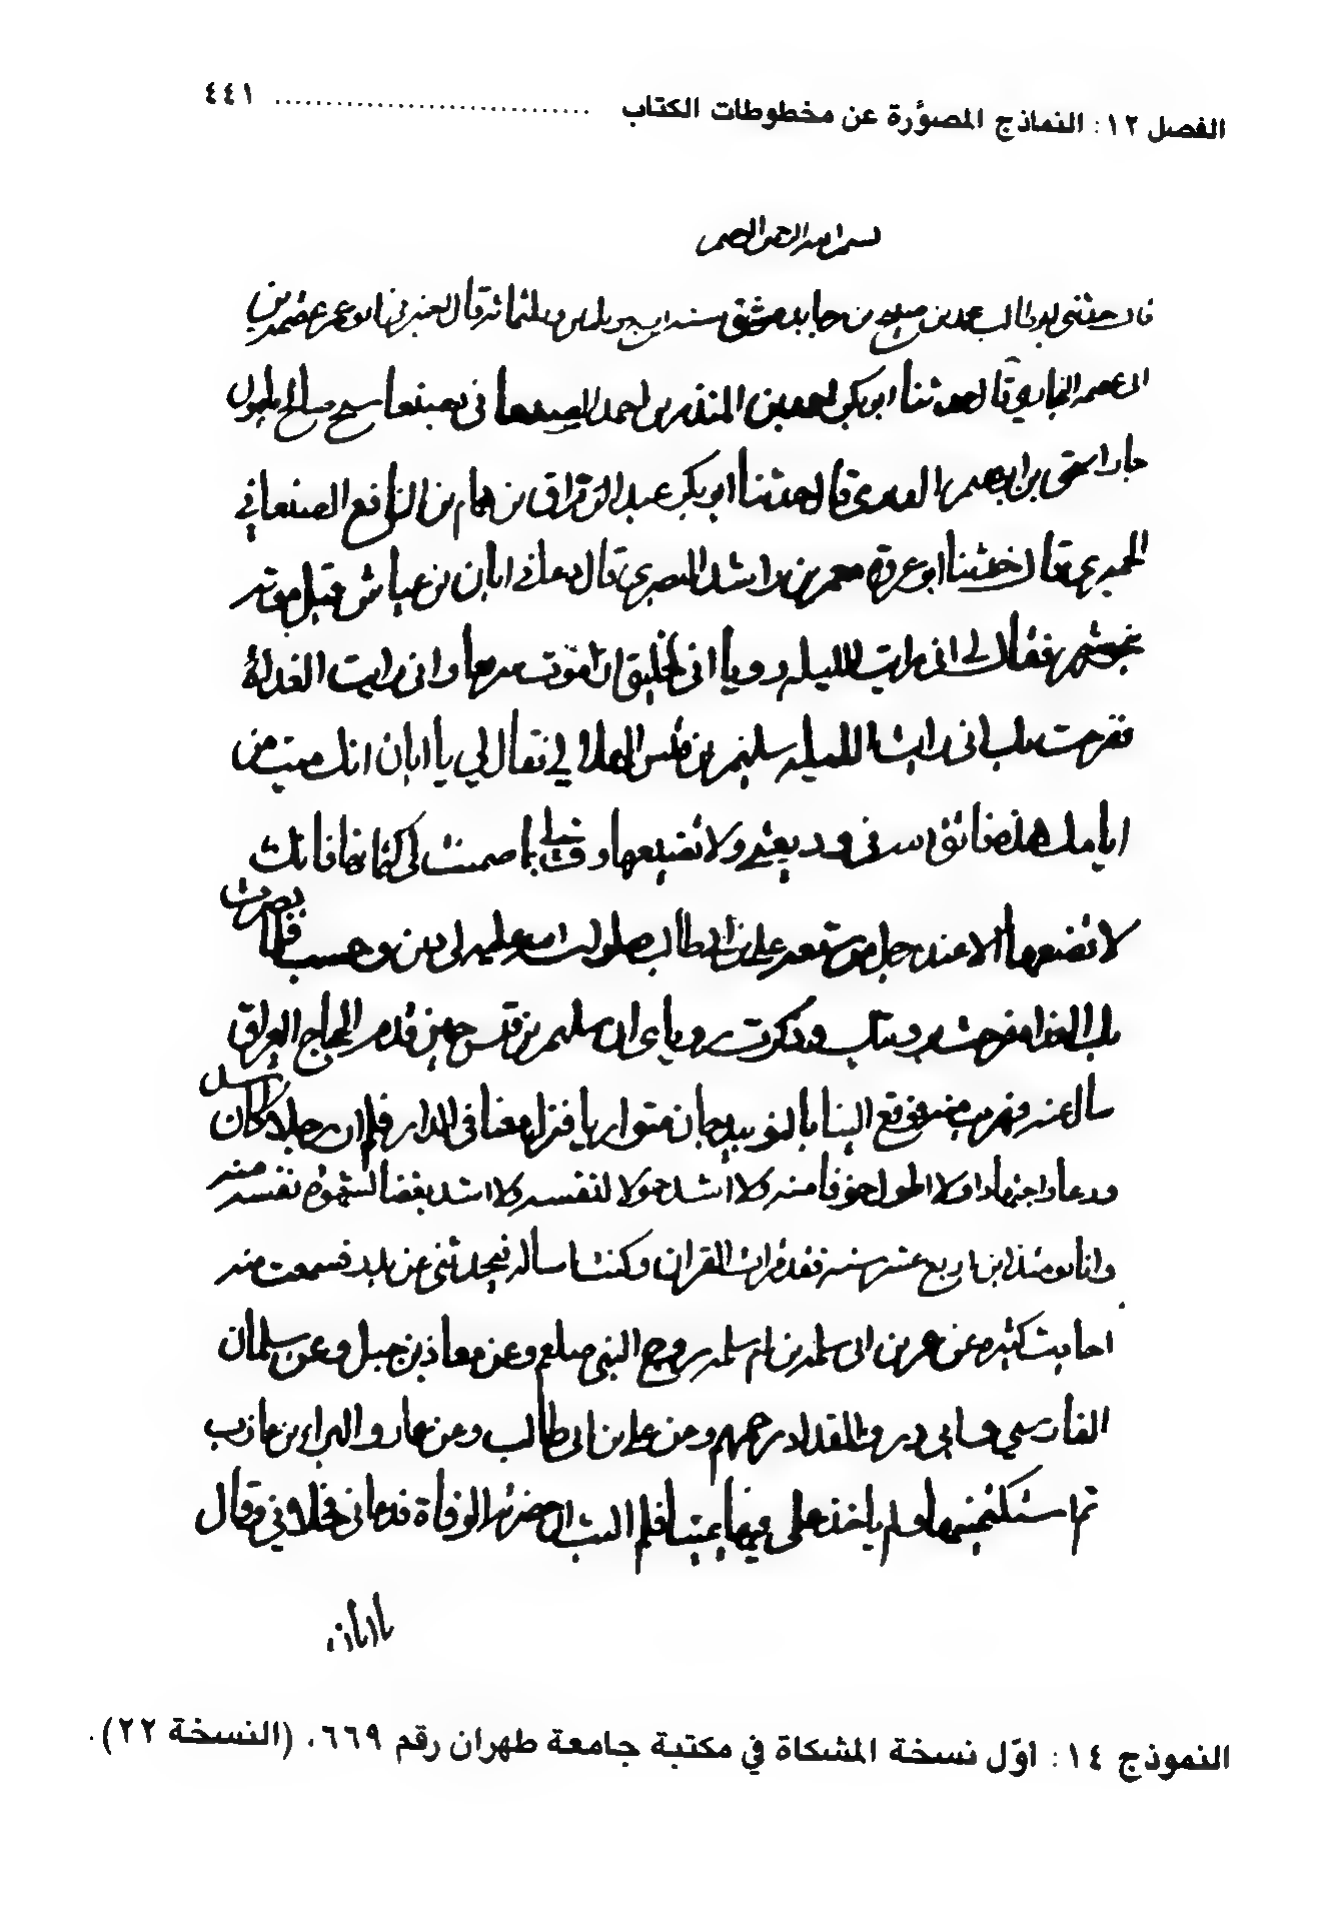 الفصل ١٢: النماذج المصوّرة عن مخطوطات الكتاب ............................ ٤٤١
بسم الله الرحمن الرحيم
قال حدثني ابو طالب محمد بن صبيح بن رجا بدمشق سنه اربع وثلثين وثلثمائة قال اخبرني ابو عمر عصمة بن
ابي عصمه البخاري قال حدثنا ابو بكر احمد بن المنذر بن احمد الصنعاني بصنعا شيخ صالح مامون
جار اسحق بن ابرهيم الدبري قال حدثنا ابو بكر عبد الرزاق بن همام بن نافع الصنعاني
الحميري قال حدثنا ابو عروة معمر بن راشد البصري قال دعاني ابان بن عياش قبل موته
بنحو شهر فقال لي اني رايت الليله رويا اني لخليق ان اموت سريعا واني رايت الغداة
ففرحت بك اني رايت الليله سليم بن قيس الهلالي فقال لي يا ابان انك ميت من
ايامك هذه فاتق الله في وديعتي ولا تضيعها وف لي بما ضمنت لي كتمانها فانك
لا تضعها الا عند رجل من شيعه علي بن ابي طالب صلوات الله عليه له دين وحسب فلما بصرت
بك الغداة فرحت برويتك وذكرت روياي ان سليم بن قيس حين قدم الحجاج العراق
سال عنه فهرب منه فوقع الينا بالنوبندجان متواريا فنزل معنا في الدار فلم ار رجلا كان
ودعا واجتهادا ولا اطول خوفا منه ولا اشد خمولا لنفسه ولا اشد بغضا لشهوة نفسه منه
وانا يومئذ ابن اربع عشر سنه فقد قرات القران وكنت اساله فيحدثني عن بدر فسمعت منه
احاديث كثيره عن عمر بن ابي سلمه بن ام سلمه زوج النبي صلعم وعن معاذ بن جبل وعن سلمان
الفارسي وابي ذر والمقداد رحمهم وعن علي بن ابي طالب وعن عمار والبراء بن عازب
ثم استكتمنيها ولم ياخذ علي فيها يمينا فلم البث ان حضرته الوفاة فدعاني فخلا بي وقال
يا ابان
النموذج ١٤: اوّل نسخة المشكاة في مكتبة جامعة طهران رقم ٦٦٩، (النسخة ٢٢).